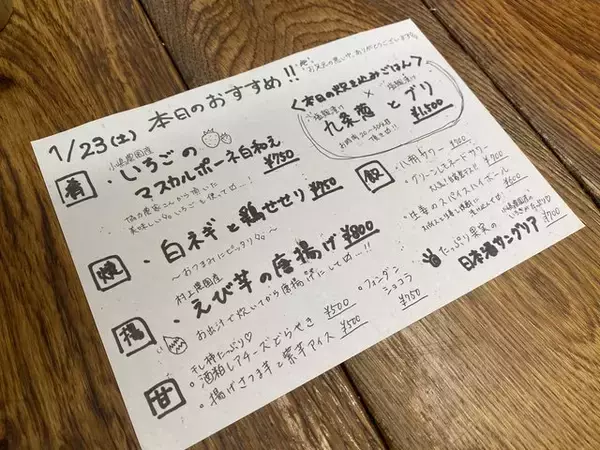 1/23(土) 本日のおすすめ!!
お足元の悪い中、ありがとうございます
肴
小嶋農園産
・いちごの
マスカルポーネ白和え ¥750
美味しいいちごを使って
焼
・白ネギと鶏せせり ¥750
〜おつまみにピッタリ〜
揚
村上農園産
・えび芋の唐揚げ ¥800
お出汁で炊いてから唐揚げにして…!!
甘
干し柿たっぷり♡
・酒粕レアチーズどらやき ¥500
・揚げさつま芋と紫芋アイス ¥500
・フォンダンショコラ ¥750
<本日の炊き込みごはん>
塩麹漬け 塩麹漬け
九条葱とブリ
¥1,500
飲
・八朔サワー ¥700
・グリーンレモネードサワー ¥700
・生姜のスパイスハイボール ¥600
小嶋農園産の
いちごがたっぷり
たっぷり果実の
日本酒サングリア ¥700